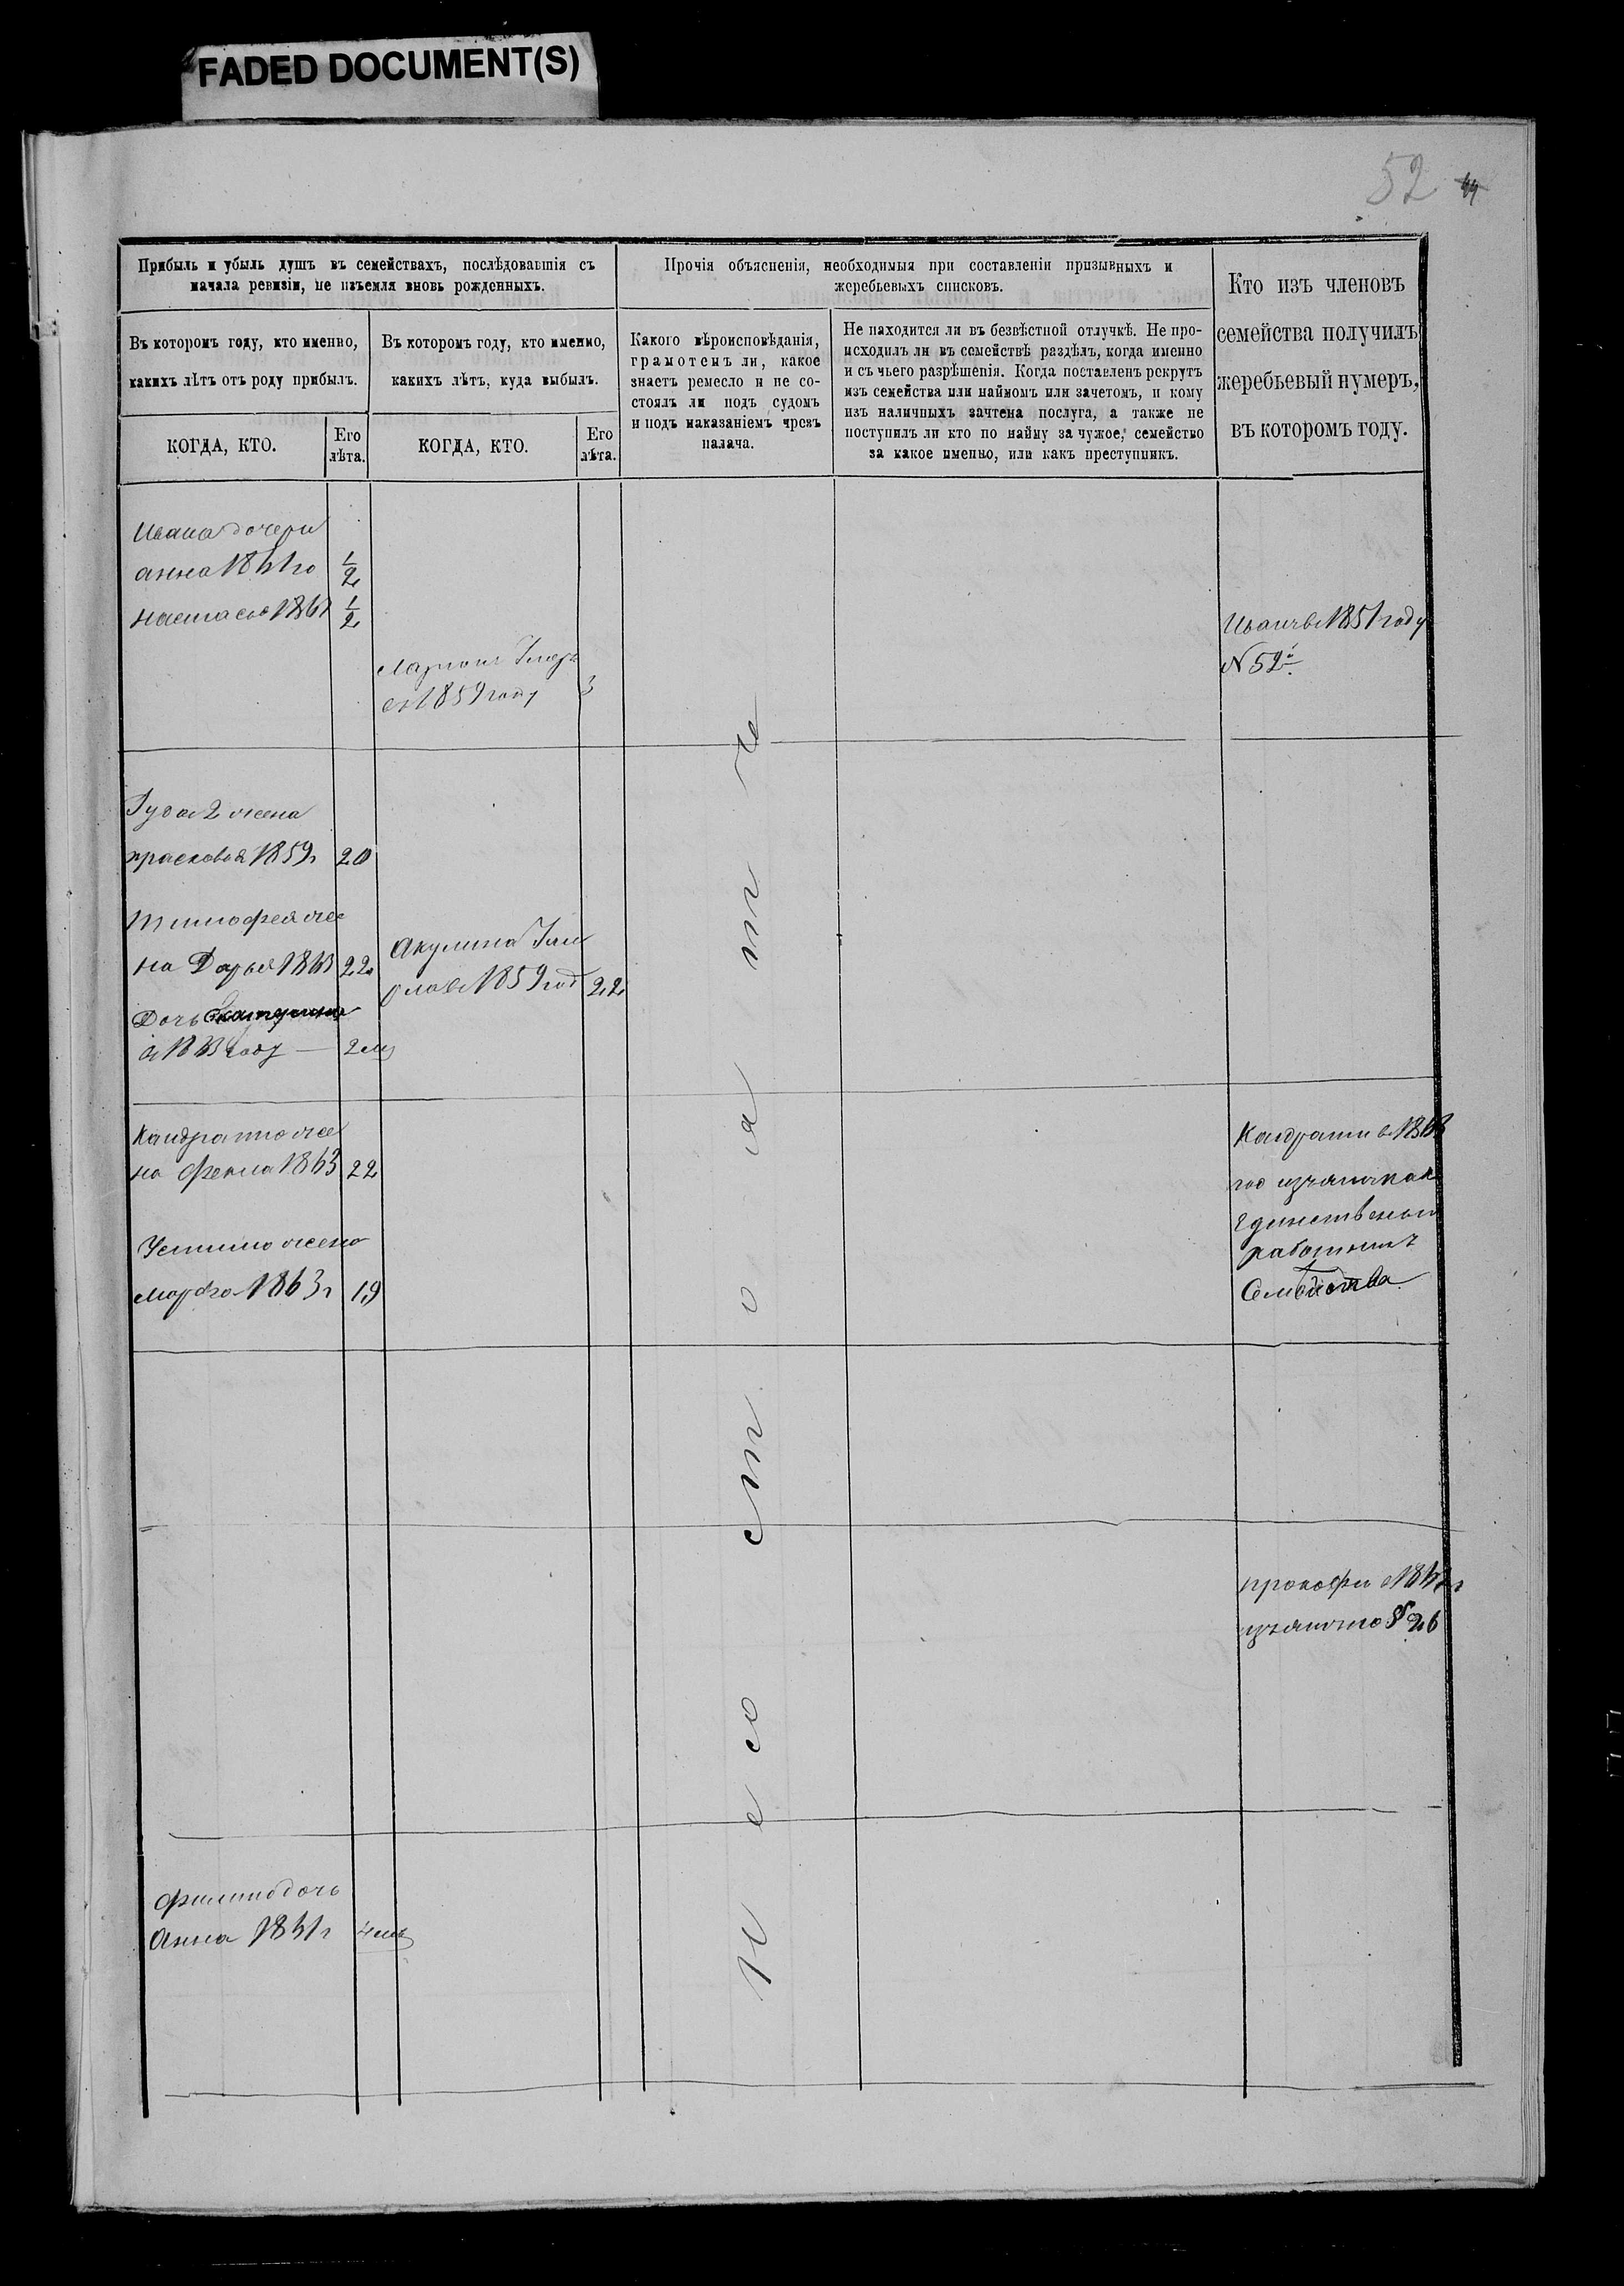 FADED DOCUMENT(S)
52
Прибыль и убыль душъ въ семействахъ, послѣдовавшія съ
начала ревизіи, не изъемля вновь рожденныхъ.
Прочія объясненія, необходимыя при составленіи призывныхъ и
жеребьевыхъ списковъ.
Кто изъ членовъ
семейства получилъ
жеребьевый нумеръ,
въ которомъ году.
Въ которомъ году, кто именно,
какихъ лѣтъ отъ роду прибылъ.
Въ которомъ году, кто именно,
какихъ лѣтъ, куда выбылъ.
Какого вѣроисповѣданія,
грамотенъ ли, какое
знаетъ ремесло и не со-
стоялъ ли подъ судомъ
и подъ наказаніемъ чрезъ
палача.
Не находится ли въ безвѣстной отлучкѣ. Не про-
исходилъ ли въ семействѣ раздѣлъ, когда именно
и съ чьего разрѣшенія. Когда поставленъ рекрутъ
изъ семейства или наймомъ или зачетомъ, и кому
изъ наличныхъ зачтена послуга, а также не
поступилъ ли кто по найму за чужое семейство
за какое именно, или какъ преступникъ.
КОГДА, КТО.
Его
лѣта.
КОГДА, КТО.
Его
лѣта.
Ивана дочери
анна 1/2
настасья 1/2
Иванъ в 1851 году
N 52й
1859 году 3
2 жена
прасковья 1859г 20
Тимофея же
на Дарья 22
Акулина
1859 год 22
Дочь Екатерина
году — 2 м
Кандратия же
на Фекла 1863 22
Кандрати в
год изъят как
Единственый
работник
Семейства
Устина жена
марфа 1863г 19
прокофи
изъят по § 26
филипа дочь
Анна 4 м